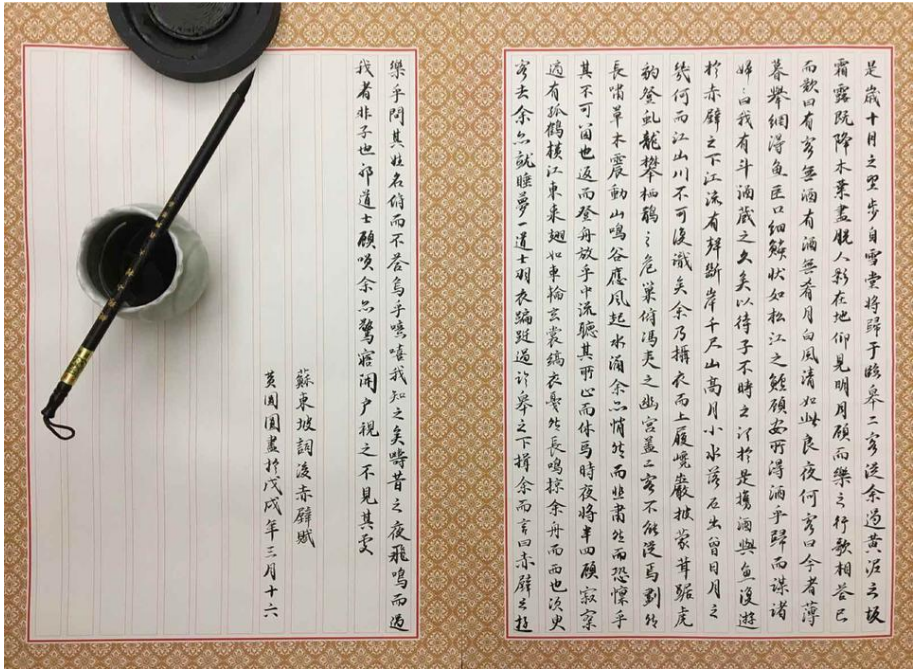 是歲十月之望步自雪堂將歸于臨皋二客從余過黃泥之坂
霜露既降木葉盡脫人影在地仰見明月顧而樂之行歌相答已
而歎曰有客無酒有酒無肴月白風清如此良夜何客曰今者薄
暮舉網得魚巨口細鱗狀如松江之鱸顧安所得酒乎歸而謀諸
婦〻曰我有斗酒藏之久矣以待子不時之須於是攜酒與魚復遊
於赤壁之下江流有聲斷岸千尺山高月小水落石出曾日月之
幾何而江山川不可復識矣余乃攝衣而上履巉巖披蒙茸踞虎
豹登虬龍攀栖鶻之危巢俯馮夷之幽宮蓋二客不能從焉劃然
長嘯草木震動山鳴谷應風起水涌余亦悄然而悲肅然而恐懍乎
其不可留也返而登舟放乎中流聽其所止而休焉時夜將半四顧寂寥
適有孤鶴橫江東來翅如車輪玄裳縞衣戛然長鳴掠余舟而西也須臾
客去余亦就睡夢一道士羽衣蹁躚過臨皋之下揖余而言曰赤壁之遊
樂乎問其姓名俯而不答烏乎噫嘻我知之矣疇昔之夜飛鳴而過
我者非子也邪道士顧笑余亦驚寤開户視之不見其處
蘇東坡詞後赤壁賦
黃圓圓書於戊戌年三月十六